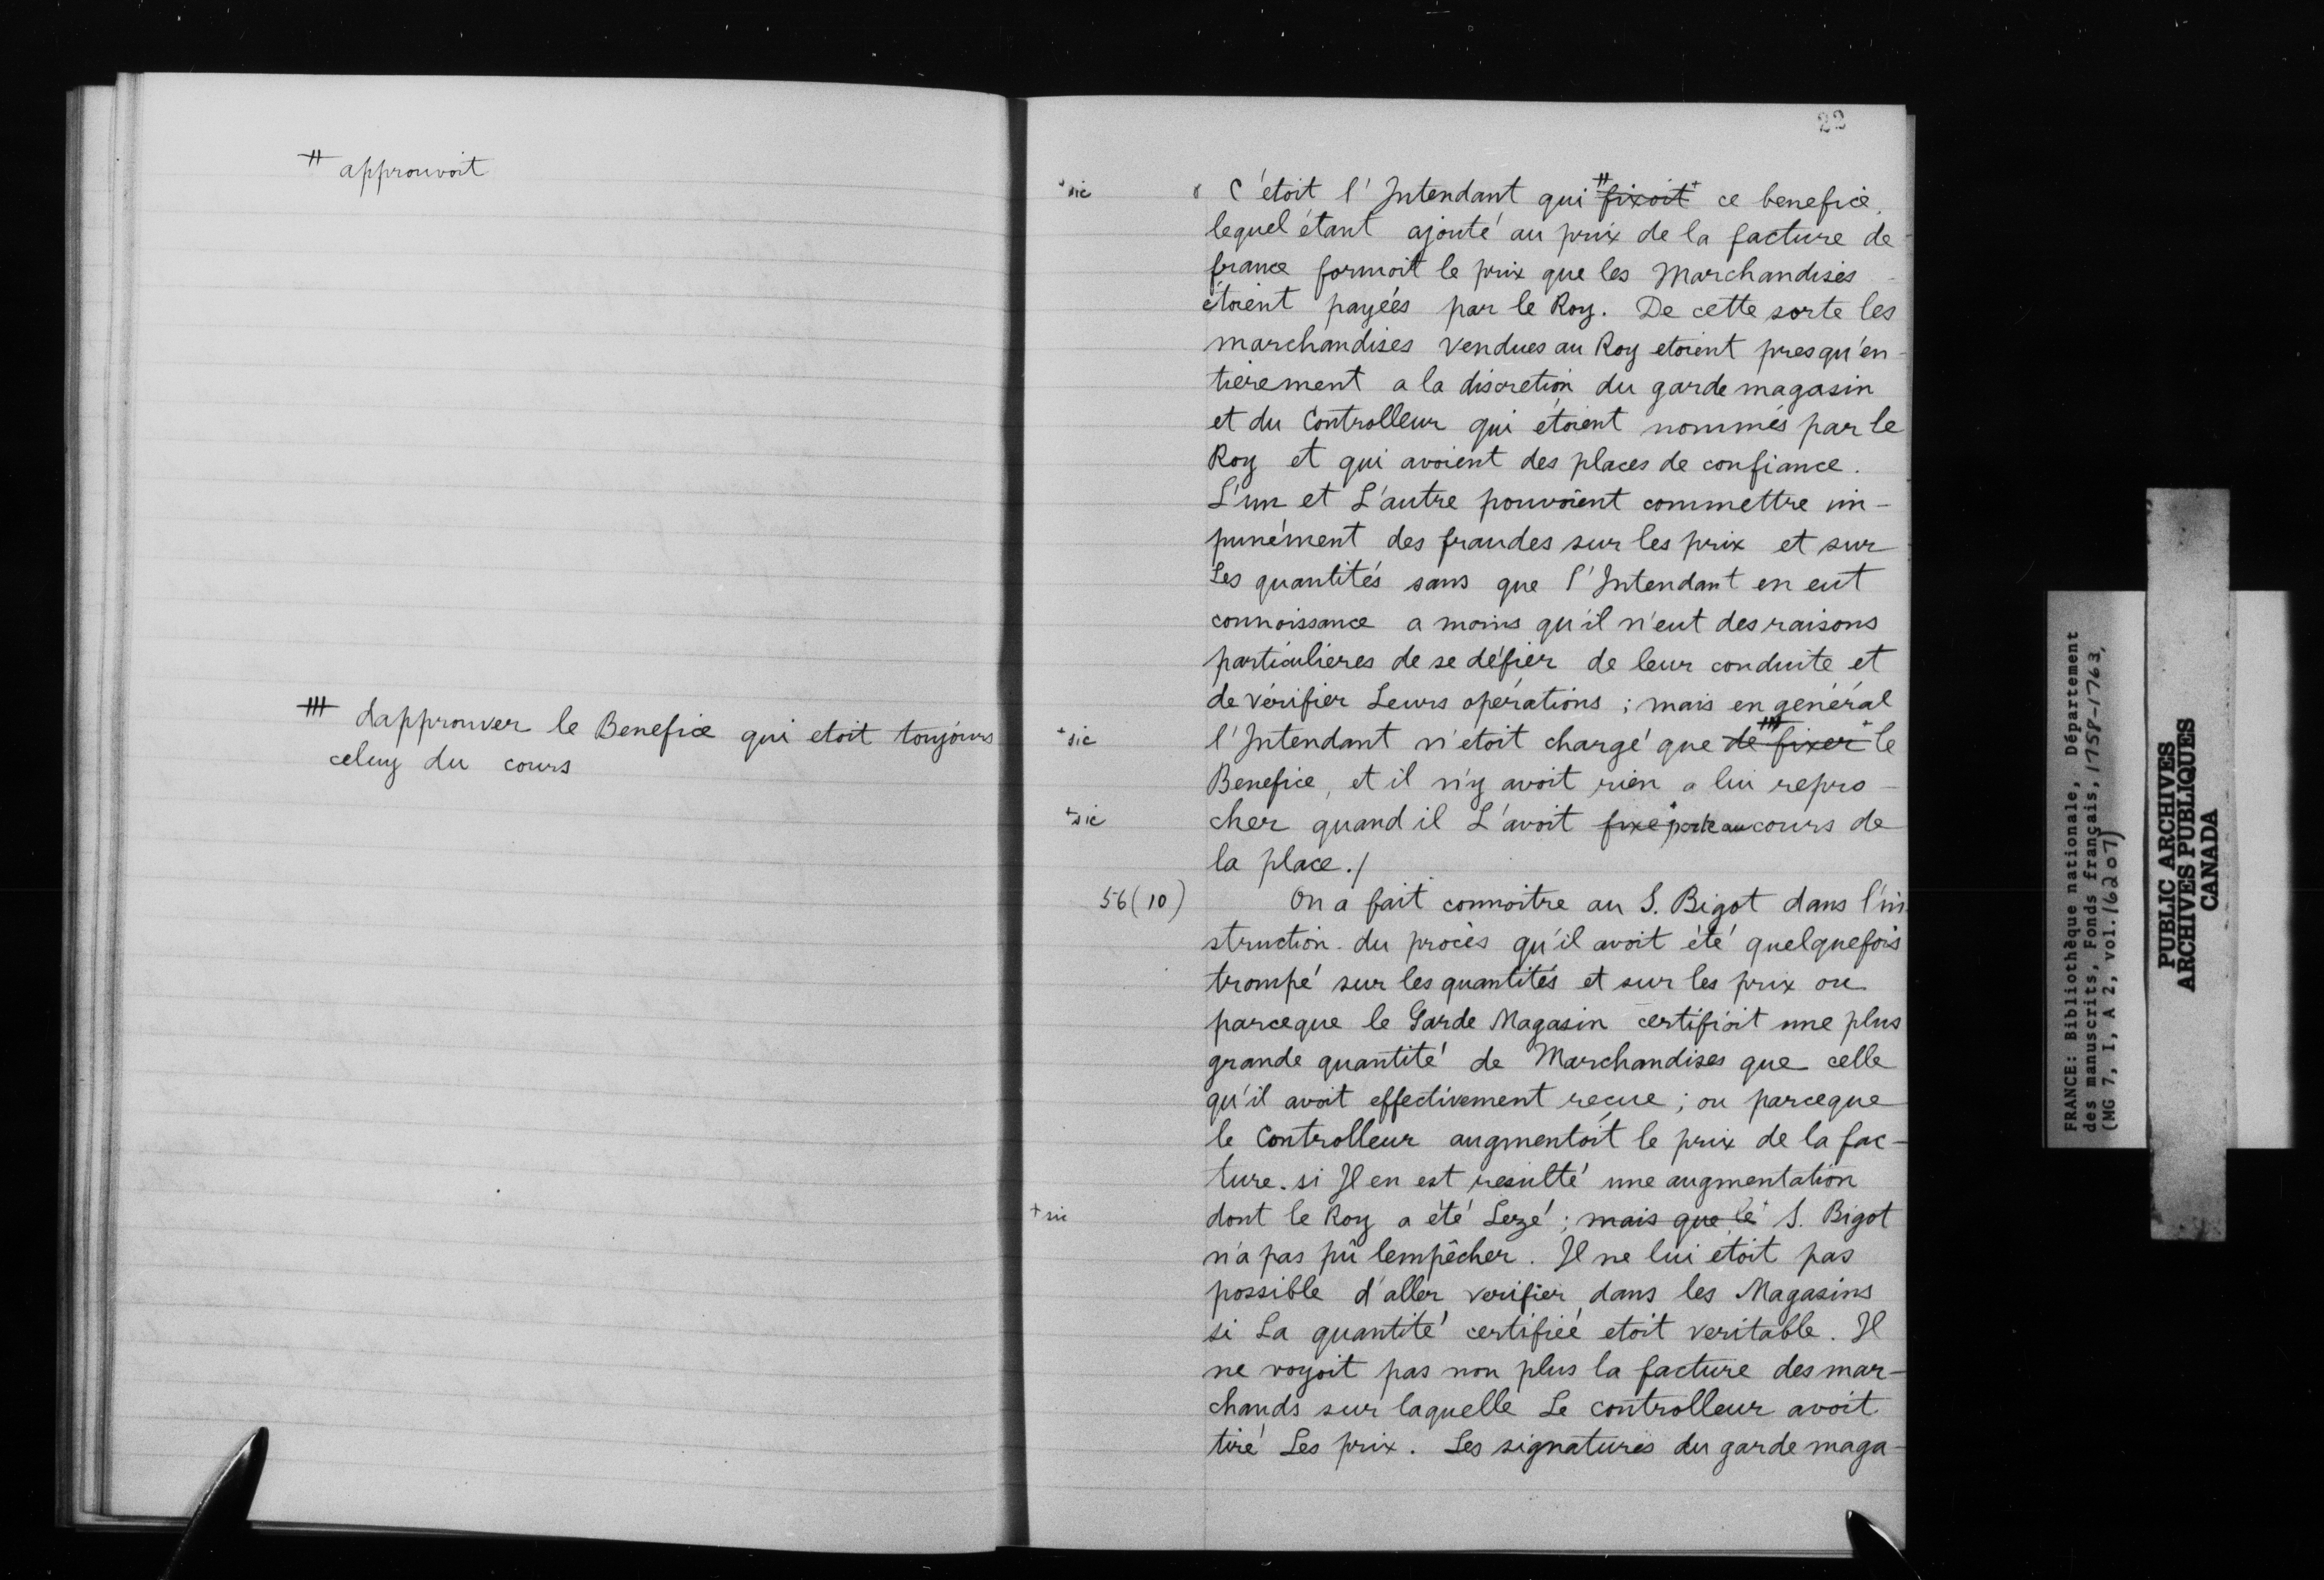 # approuvoit
# dapprouver le Benefice qui etoit toujours
celuy du cours
22
+sic
C'étoit l'Intendant qui # ~~fixoit~~+ ce benefice,
lequel étant ajouté au prix de la facture de
france formoit le prix que les Marchandises
étoient payées par le Roy. De cette sorte les
marchandises vendues au Roy etoient presqu'en-
tièrement a la discretion du garde magasin
et du Controlleur qui étoient nommés par le
Roy et qui avoient des places de confiance.
L'un et L'autre pouvoient commettre im-
punément des fraudes sur les prix et sur
Les quantités sans que l'Intendant en eut
connoissance a moins qu'il n'eut des raisons
particulieres de se défier de leur conduite et
de vérifier Leurs opérations ; mais en général
+sic
l'Intendant n'etoit chargé que ~~de # fixer~~+ le
Benefice, et il n'y avoit rien a lui repro-
+sic
cher quand il L'avoit ~~fixé~~+ porté au cours de
la place./
56(10)
On a fait connoitre au S. Bigot dans l'in-
struction du procès qu'il avoit été quelquefois
trompé sur les quantités et sur les prix ou
parceque le Garde Magasin certifioit une plus
grande quantité de Marchandises que celle
qu'il avoit effectivement reçue ; ou parceque
le Controlleur augmentoit le prix de la fac-
ture. si Il en est resulté une augmentation
+sic
dont le Roy a été Lezé ; ~~mais que le~~+ S. Bigot
n'a pas pû lempêcher. Il ne lui étoit pas
possible d'aller verifier dans les Magasins
si La quantité certifiée etoit veritable. Il
ne voyoit pas non plus la facture des mar-
chands sur laquelle Le controlleur avoit
tiré Les prix. Les signatures du garde maga-
FRANCE: Bibliothèque nationale, Département
des manuscrits, Fonds français, 1758-1763,
(MG 7, I, A 2, vol. 16207)
PUBLIC ARCHIVES
ARCHIVES PUBLIQUES
CANADA